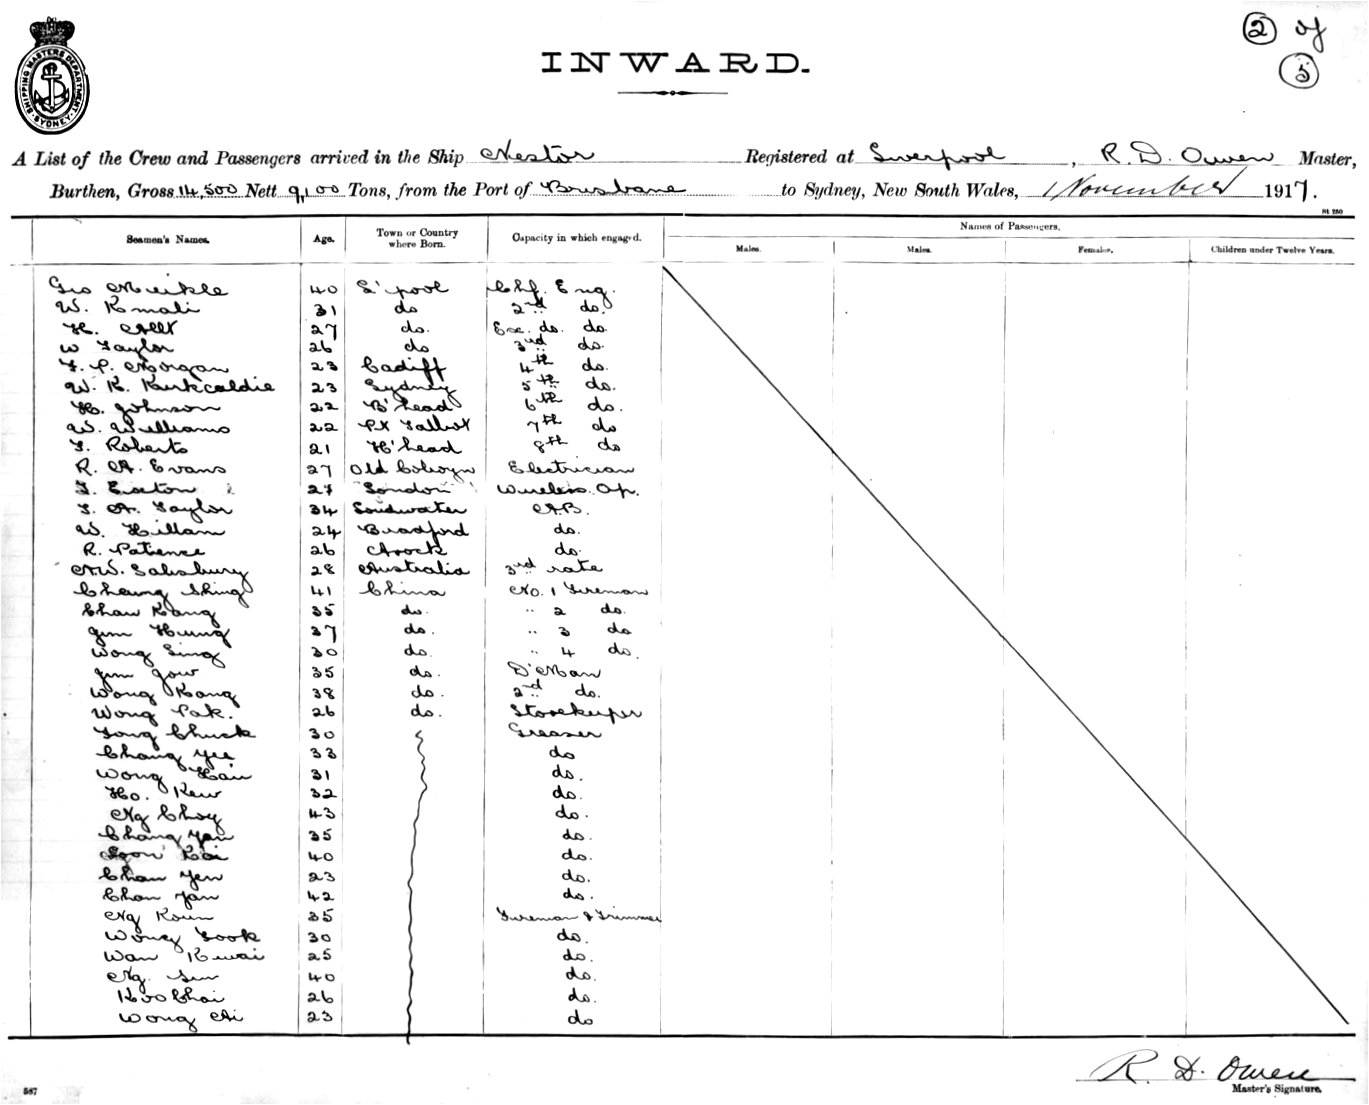 2 of
5
SHIPPING MASTERS DEPARTMENT
SYDNEY
INWARD.
A List of the Crew and Passengers arrived in the Ship Nestor Registered at Liverpool, R. D. Owen Master,
Burthen, Gross 14,500 Nett 9,100 Tons, from the Port of Brisbane to Sydney, New South Wales, 1 November 1917.
St 250
Seamen's Names. Age. Town or Country where Born. Capacity in which engaged. Names of Passengers.
Males. Males. Females. Children under Twelve Years.
Geo Meikle 40 L'pool Chf. Eng.
W. Kmali 31 do 2nd do.
H. Allt 27 do. Ex. do. do.
W Taylor 26 do 3rd do.
F. P. Morgan 23 Cadiff 4th do.
W. K. Kirkcaldie 23 Sydney 5th do.
H. Johnson 22 B'head 6th do.
W. Williams 22 Pt Talbot 7th do
F. Roberts 21 H'head 8th do
R. A. Evans 27 Old Colwyn Electrician
F. Exton 27 London Wireless Op.
F. A. Taylor 34 A.B.
W. Hillam 24 Bradford do.
R. Patience 26 do.
A.W. Salisbury 28 Australia 3rd rate
Cheung Shing 41 China No. 1 Fireman
Chan Kang 35 do. " 2 do.
Jim Hung 37 do. " 3 do
Wong Sing 30 do. " 4 do.
Jim Gow 35 do. D'Man
Wong Kang 38 do. 2nd do.
Wong Pak. 26 do. Storekeeper
Tong Chuck 30 Greaser
Chang Yee 33 do
Wong Hai 31 do.
Ho. Kew 32 do.
Ng Choy 43 do.
Chang Yan 35 do.
Soon Koi 40 do.
Chan Yen 23 do.
Chan Yan 42 do.
Ng Koun 35 Fireman & Trimmer
Wong Sook 30 do.
Wan Kwai 25 do.
Ng. Sun 40 do.
Koo Chai 26 do.
Wong Ai 23 do
R. D. Owen
Master's Signature.
587